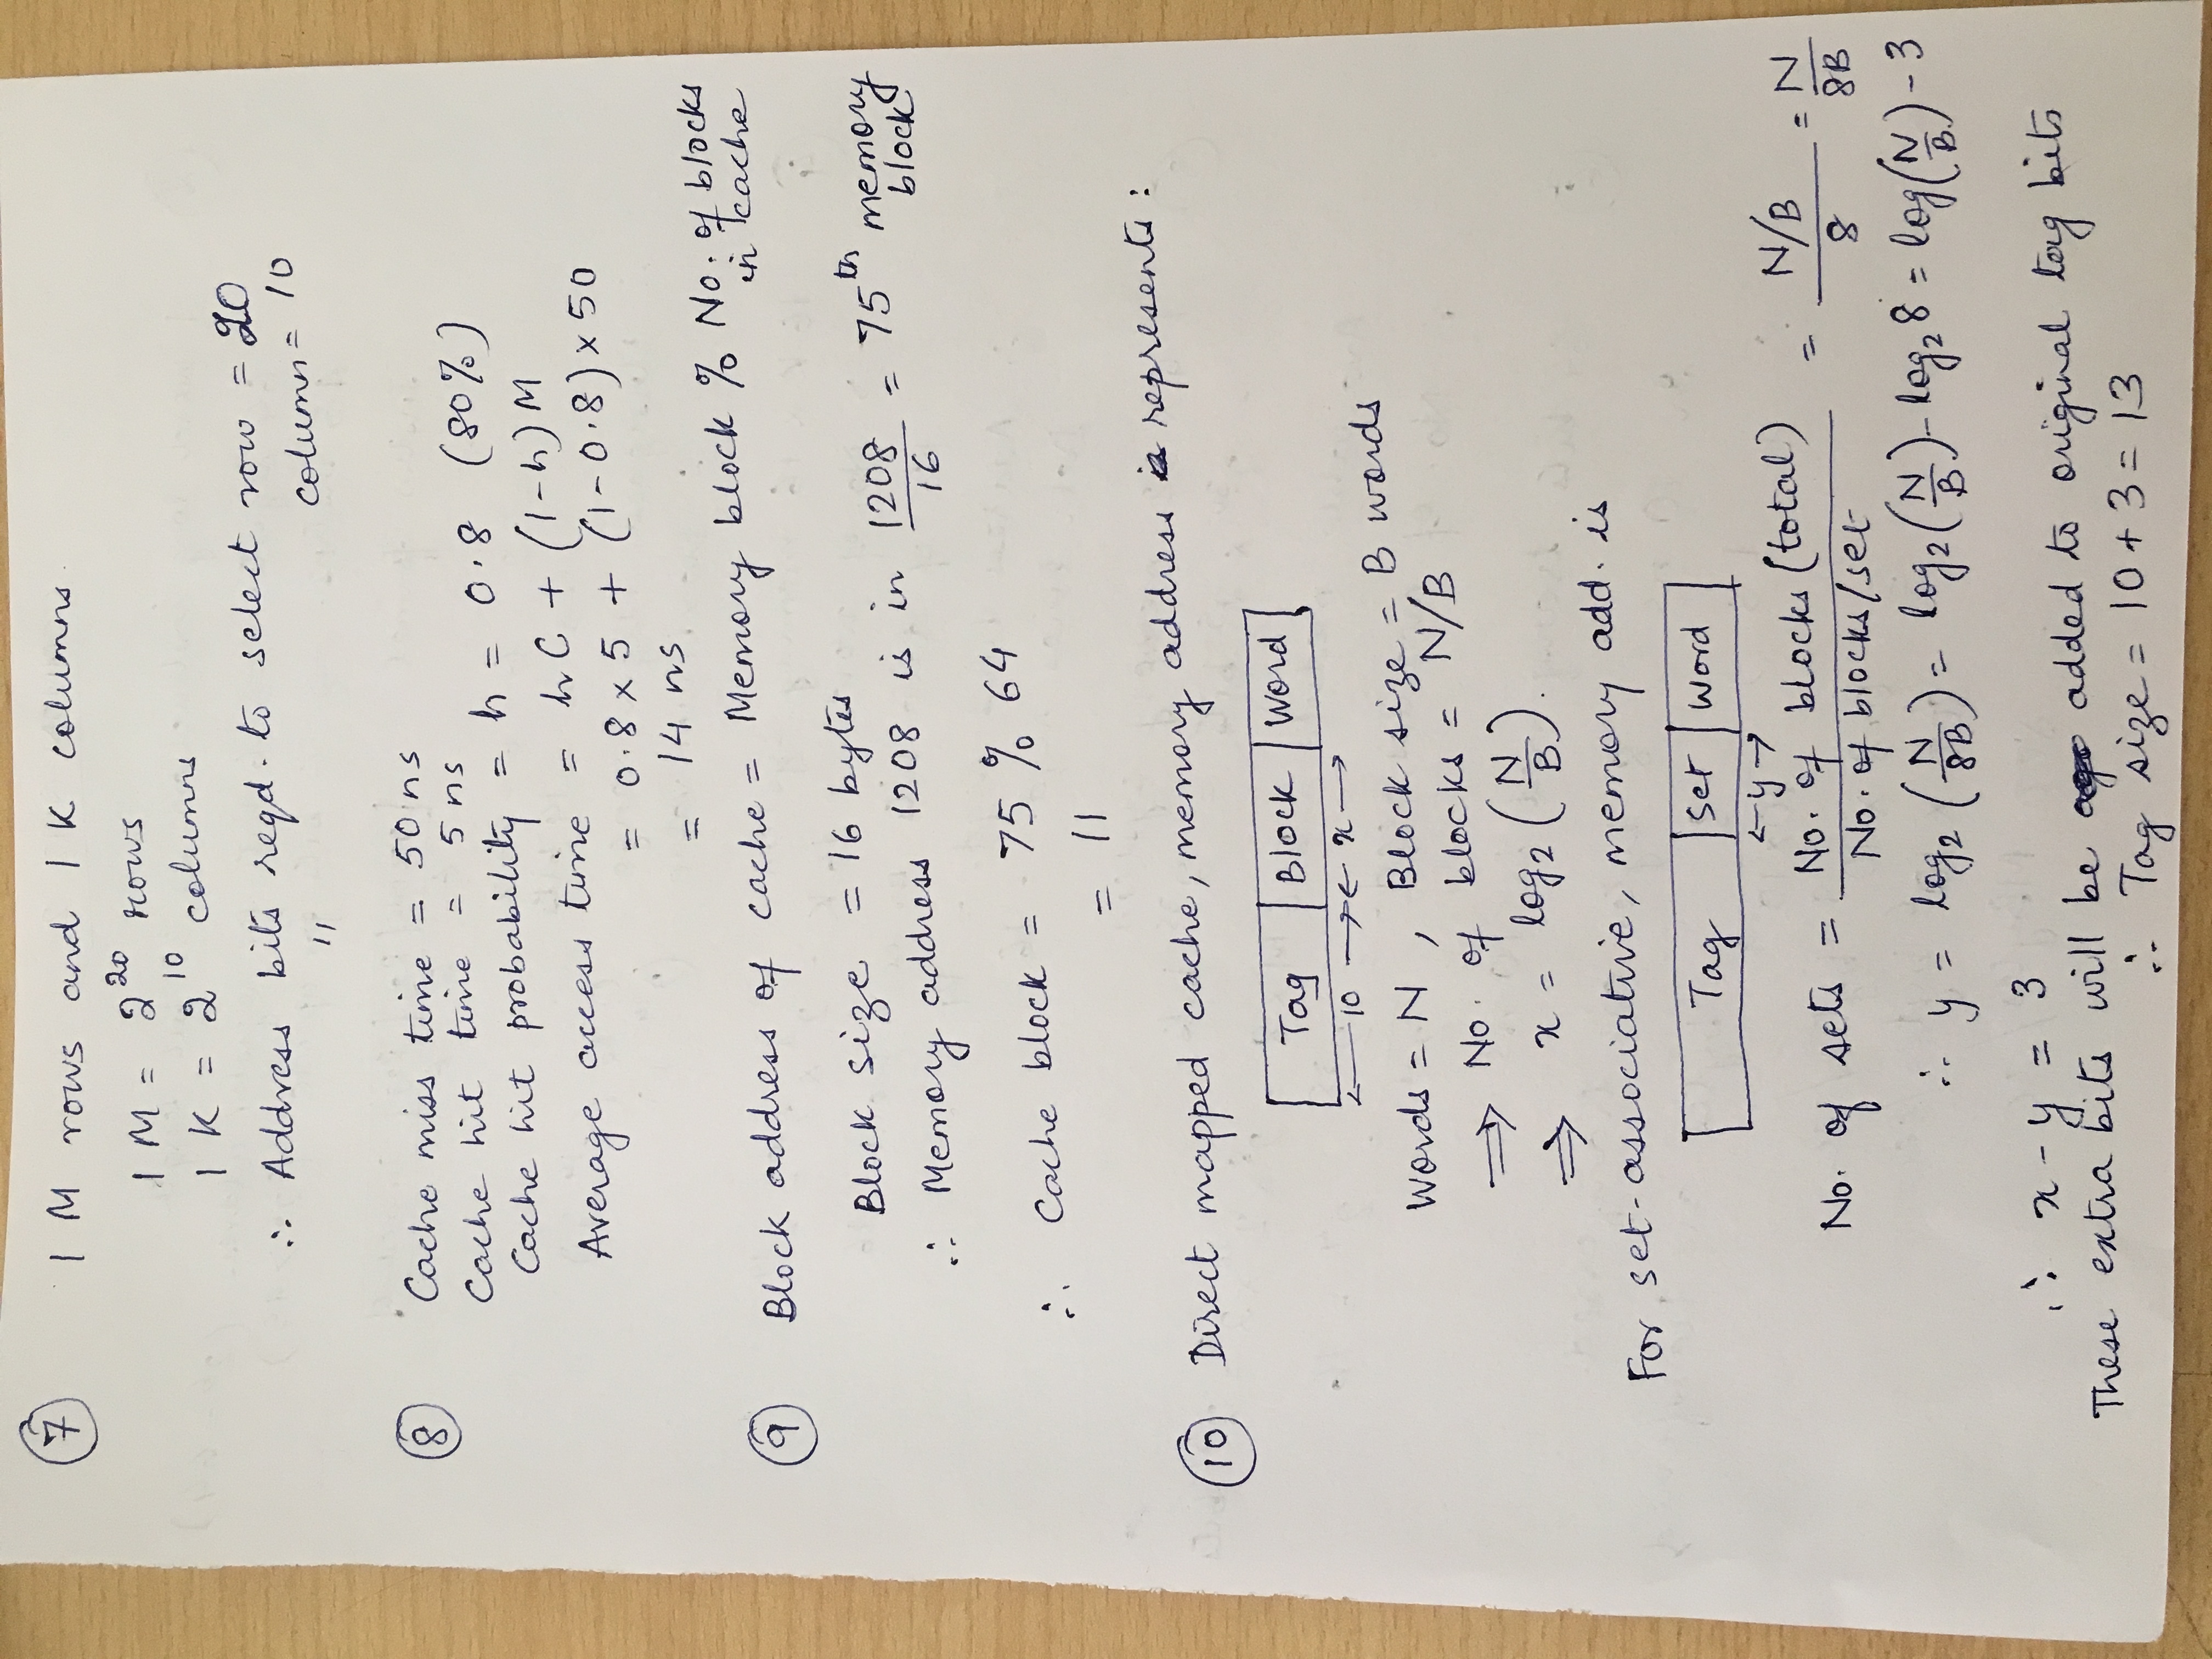 7 1 M rows and 1 K columns.
1 M = 2^20 rows
1 K = 2^10 columns
∴ Address bits reqd. to select row = 20
" column = 10
8 Cache miss time = 50 ns
Cache hit time = 5 ns
Cache hit probability = h = 0.8 (80%)
Average access time = hC + (1-h)M
= 0.8 x 5 + (1-0.8) x 50
= 14 ns
9 Block address of cache = Memory block % No. of blocks
in cache
Block size = 16 bytes
∴ Memory address 1208 is in 1208/16 = 75th memory
block
∴ Cache block = 75 % 64
= 11
10 Direct mapped cache, memory address represents:
Tag Block Word
10 x
Words = N, Block size = B words
⇒ No. of blocks = N/B
⇒ x = log2 (N/B).
For set-associative, memory add. is
Tag Set Word
y
No. of sets = No. of blocks (total) / No. of blocks/set = N/B / 8 = N/8B
∴ y = log2 (N/8B) = log2 (N/B) - log2 8 = log (N/B) - 3
∴ x - y = 3
These extra bits will be added to original tag bits
∴ Tag size = 10 + 3 = 13